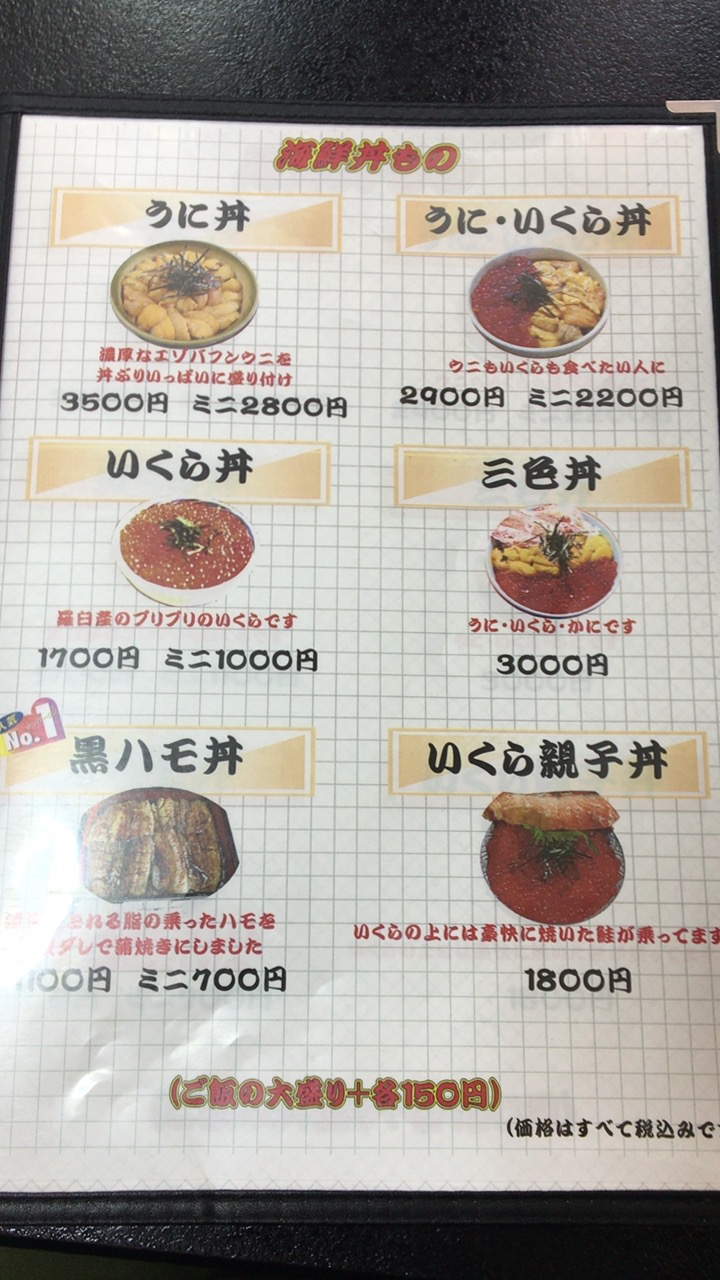 海鮮丼もの
うに丼
濃厚なエゾバフンウニを
丼ぶりいっぱいに盛り付け
3500円 ミニ2800円
うに・いくら丼
ウニもいくらも食べたい人に
2900円 ミニ2200円
いくら丼
羅臼産のプリプリのいくらです
1700円 ミニ1000円
三色丼
うに・いくら・かにです
3000円
人気
No.1
黒ハモ丼
れる脂の乗ったハモを
ダレで蒲焼きにしました
100円 ミニ700円
いくら親子丼
いくらの上には豪快に焼いた鮭が乗ってます
1800円
(ご飯の大盛り+各150円)
(価格はすべて税込みで